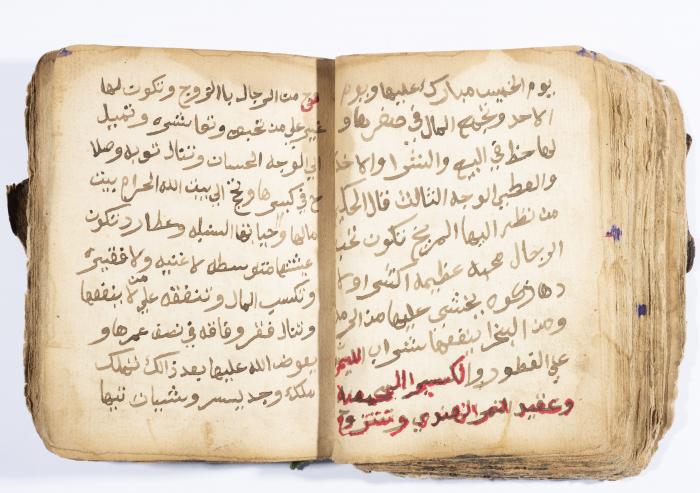 يوم الخميس مبارك عليها ويوم
الاحد وتجمع المال في صغرها و
لها حظ في البيع والشرا والاخذ
والعطي الوجه الثالث قال الحكيم
من نظر اليها المريخ تكون تحب
الرجال محبة عظيمه اكثر اولا
دها ذكوره يخشى عليها من الحرمه
ومن البخر ينفعها شراب الليم
علي الفطور والكسبرا المحمصة
وعقيد التمر الهندي وتتزوج
من الرجال باالزوج وتكون لها
غير علي من تحبهم وتعاشره وتميل
الي الوجه الحسان وتنال توبه وصلا
ح في كبرها وتحج الي بيت الله الحرام بيت
مالها واحيانها السنبله وعطارد تكون
عيشتها متوسطه لا غنيه ولا فقيره
وتكسب المال وتنفقه علي من لا ينفعها
وتنال فقر وفاقه في نصف عمرها و
يعوض الله عليها بعد ذالك تملك
ملكه وجد يسر وشبات نبها